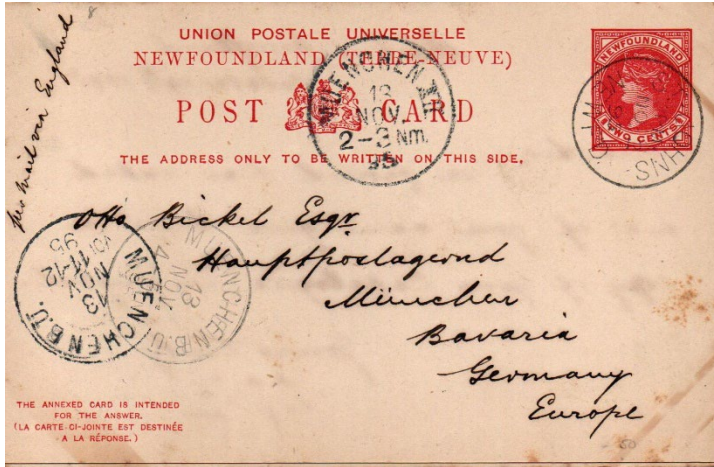 UNION POSTALE UNIVERSELLE
NEWFOUNDLAND (TERRE-NEUVE)
POST CARD
THE ADDRESS ONLY TO BE WRITTEN ON THIS SIDE.
NEWFOUNDLAND
TWO CENTS
MUENCHEN
13
NOV.
2-3 Nm.
95
mail via England
Otto Bickel Esqr
Hauptpostlagernd
München
Bavaria
Germany
Europe
MUENCHEN B.U.
13
NOV
11-12
95
MUENCHEN B.U.
13
NOV.
4
THE ANNEXED CARD IS INTENDED
FOR THE ANSWER.
(LA CARTE-CI-JOINTE EST DESTINÉE
A LA RÉPONSE.)
50